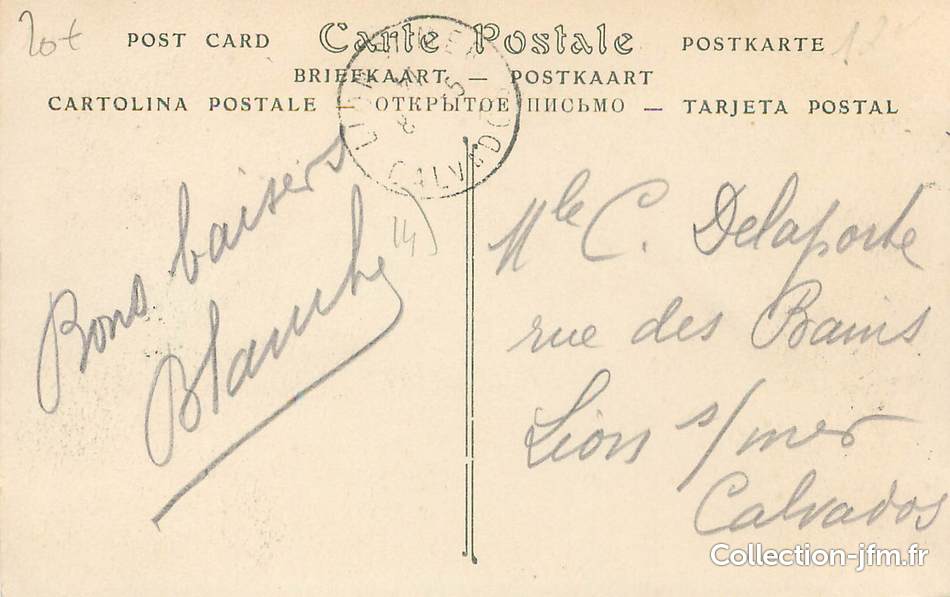 20t
POST CARD Carte Postale POSTKARTE
BRIEFKAART — POSTKAART
CARTOLINA POSTALE — ОТКРЫТОЕ ПИСЬМО — TARJETA POSTAL
CALVADOS
14)
Bons baisers
Blanche
Mle C. Delaporte
rue des Bains
Lion s/mer
Calvados
Collection-jfm.fr